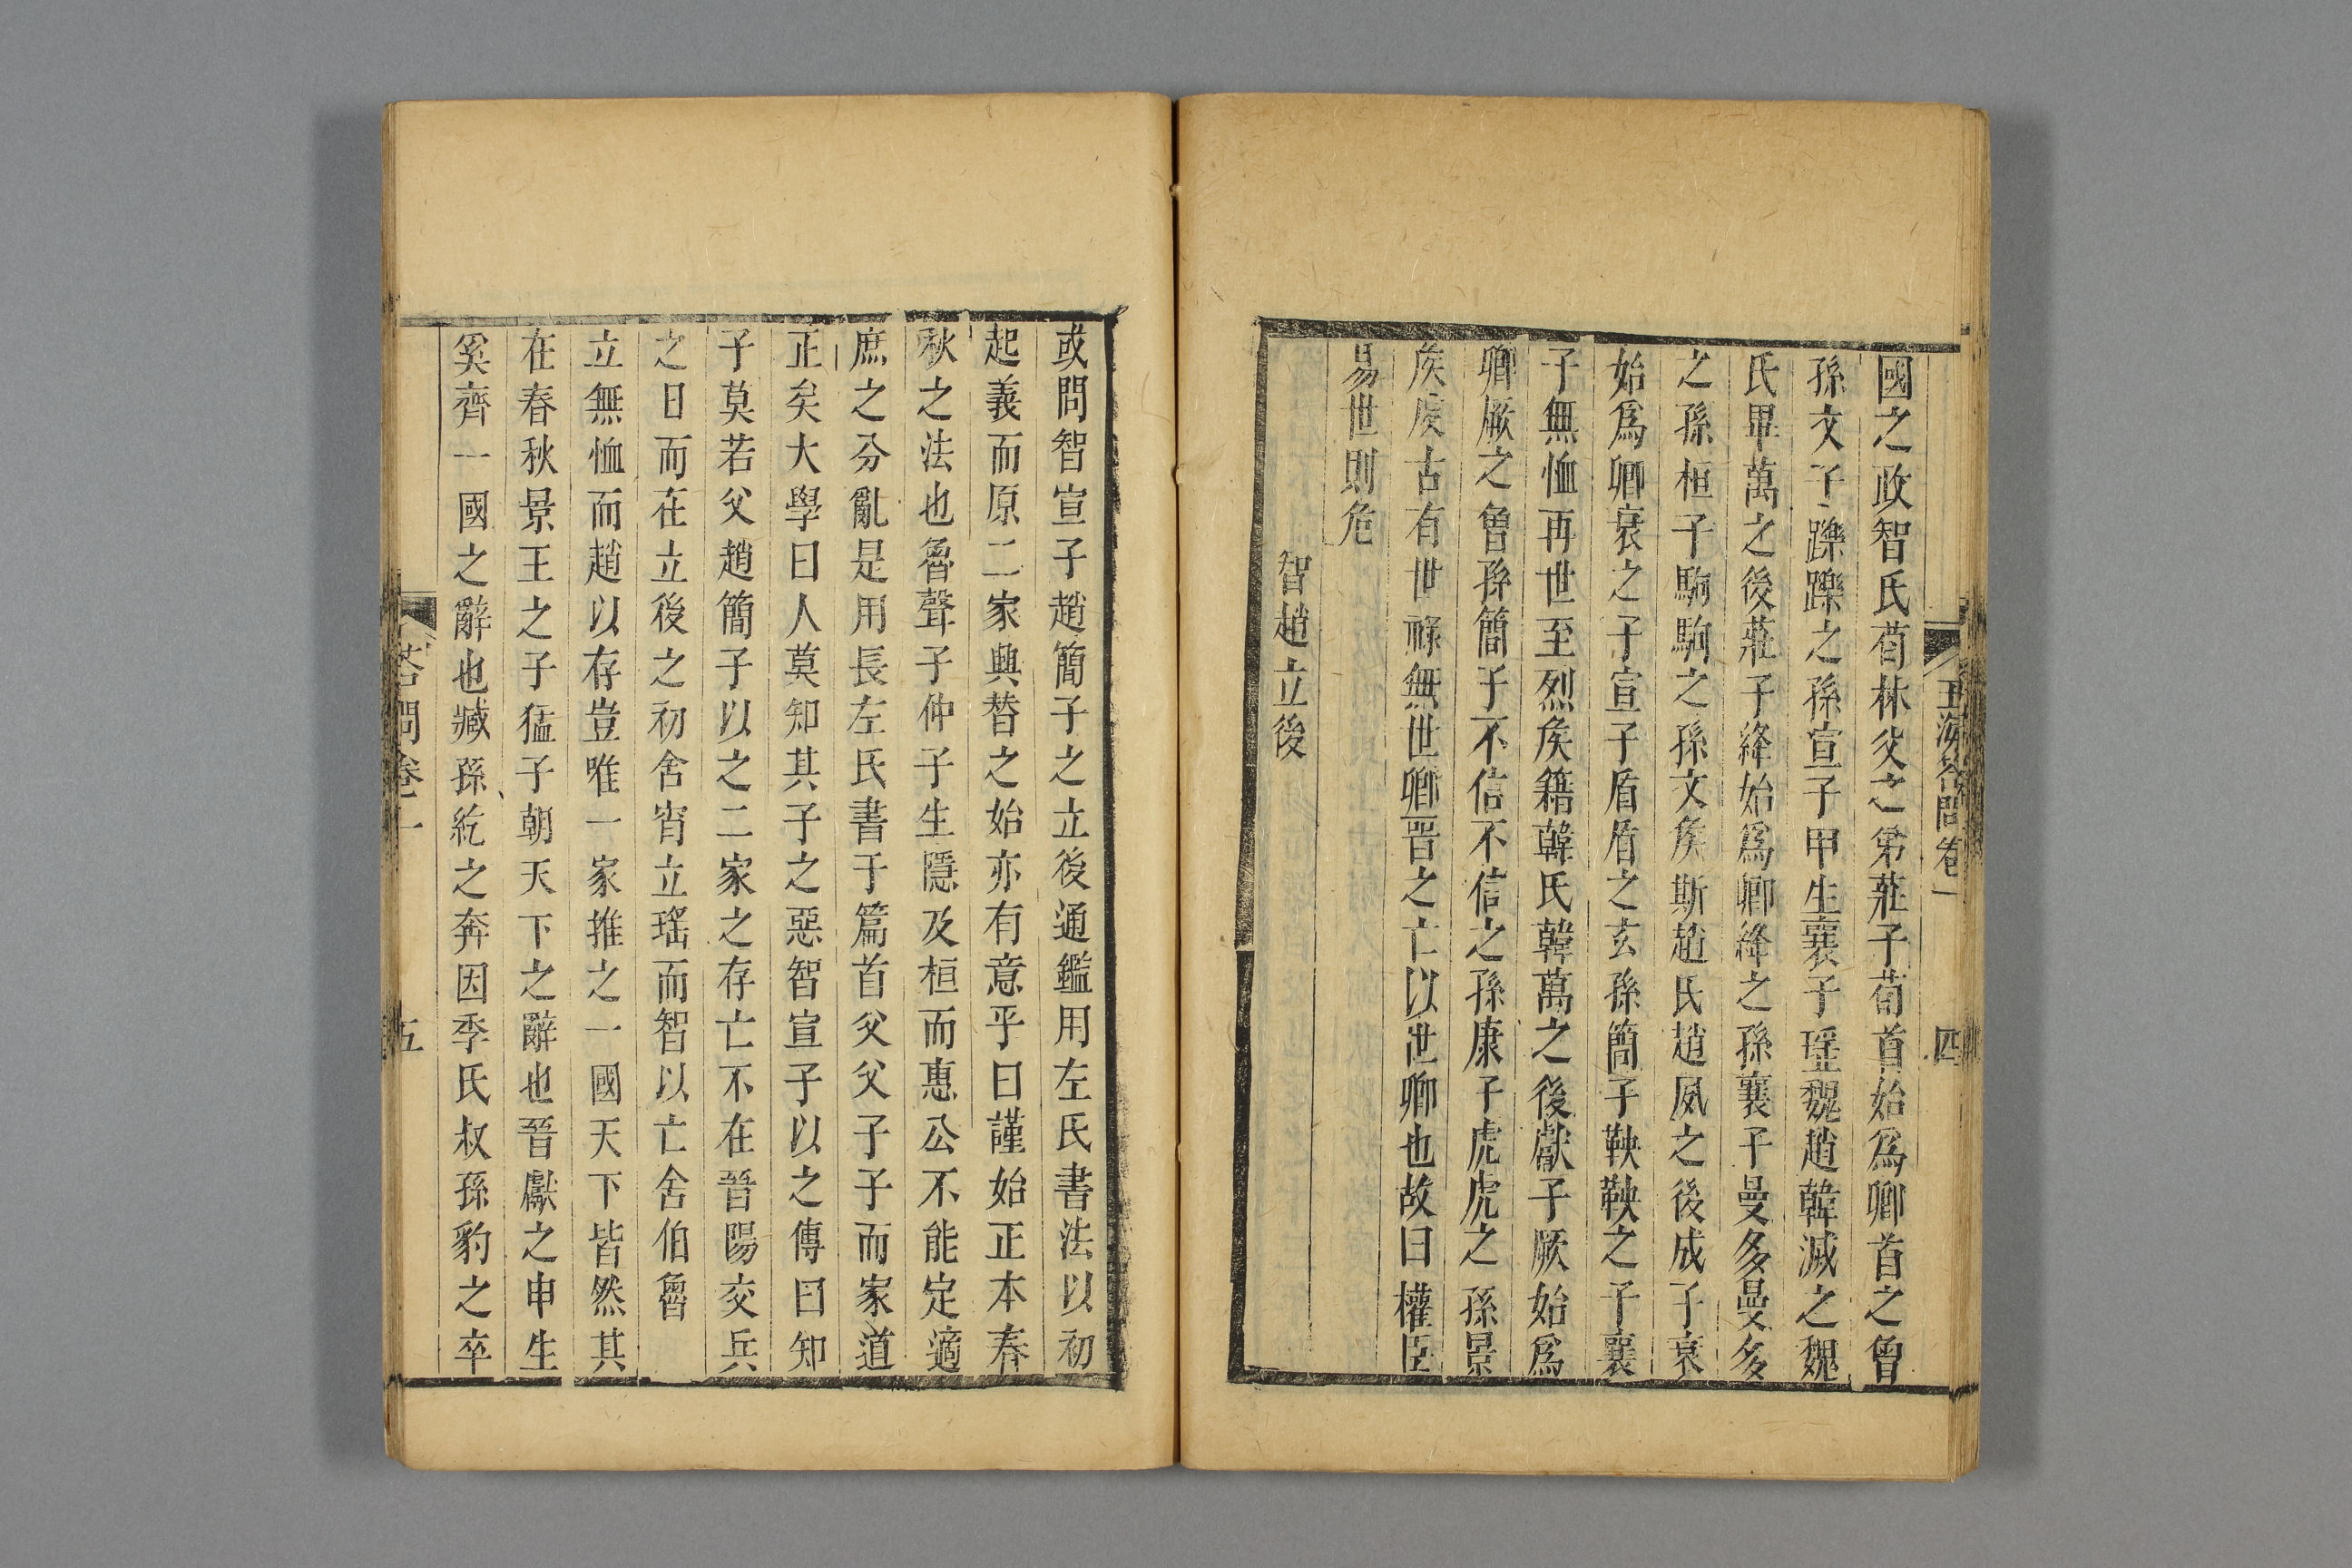 玉海答問卷一 四
國之政智氏荀林父之弟莊子荀首始爲卿首之曾
孫文子躒躒之孫宣子甲生襄子瑶魏趙韓滅之魏
氏畢萬之後莊子絳始爲卿絳之孫襄子曼多曼多
之孫桓子駒駒之孫文矦斯趙氏趙夙之後成子衰
始爲卿衰之子宣子盾盾之玄孫簡子鞅鞅之子襄
子無恤再世至烈矦籍韓氏韓萬之後獻子厥始爲
卿厥之曾孫簡子不信不信之孫康子虎虎之孫景
矦虔古有世祿無世卿晉之亡以世卿也故曰權臣
易世則危
智趙立後
或問智宣子趙簡子之立後通鑑用左氏書法以初
起義而原二家興替之始亦有意乎曰謹始正本春
秋之法也魯聲子仲子生隱及桓而惠公不能定適
庶之分亂是用長左氏書于篇首父父子子而家道
正矣大學曰人莫知其子之惡智宣子以之傳曰知
子莫若父趙簡子以之二家之存亡不在晉陽交兵
之日而在立後之初舍宵立瑤而智以亡舍伯魯
立無恤而趙以存豈唯一家推之一國天下皆然其
在春秋景王之子猛子朝天下之辭也晉獻之申生
奚齊一國之辭也臧孫紇之奔因季氏叔孫豹之卒
答問卷一 五